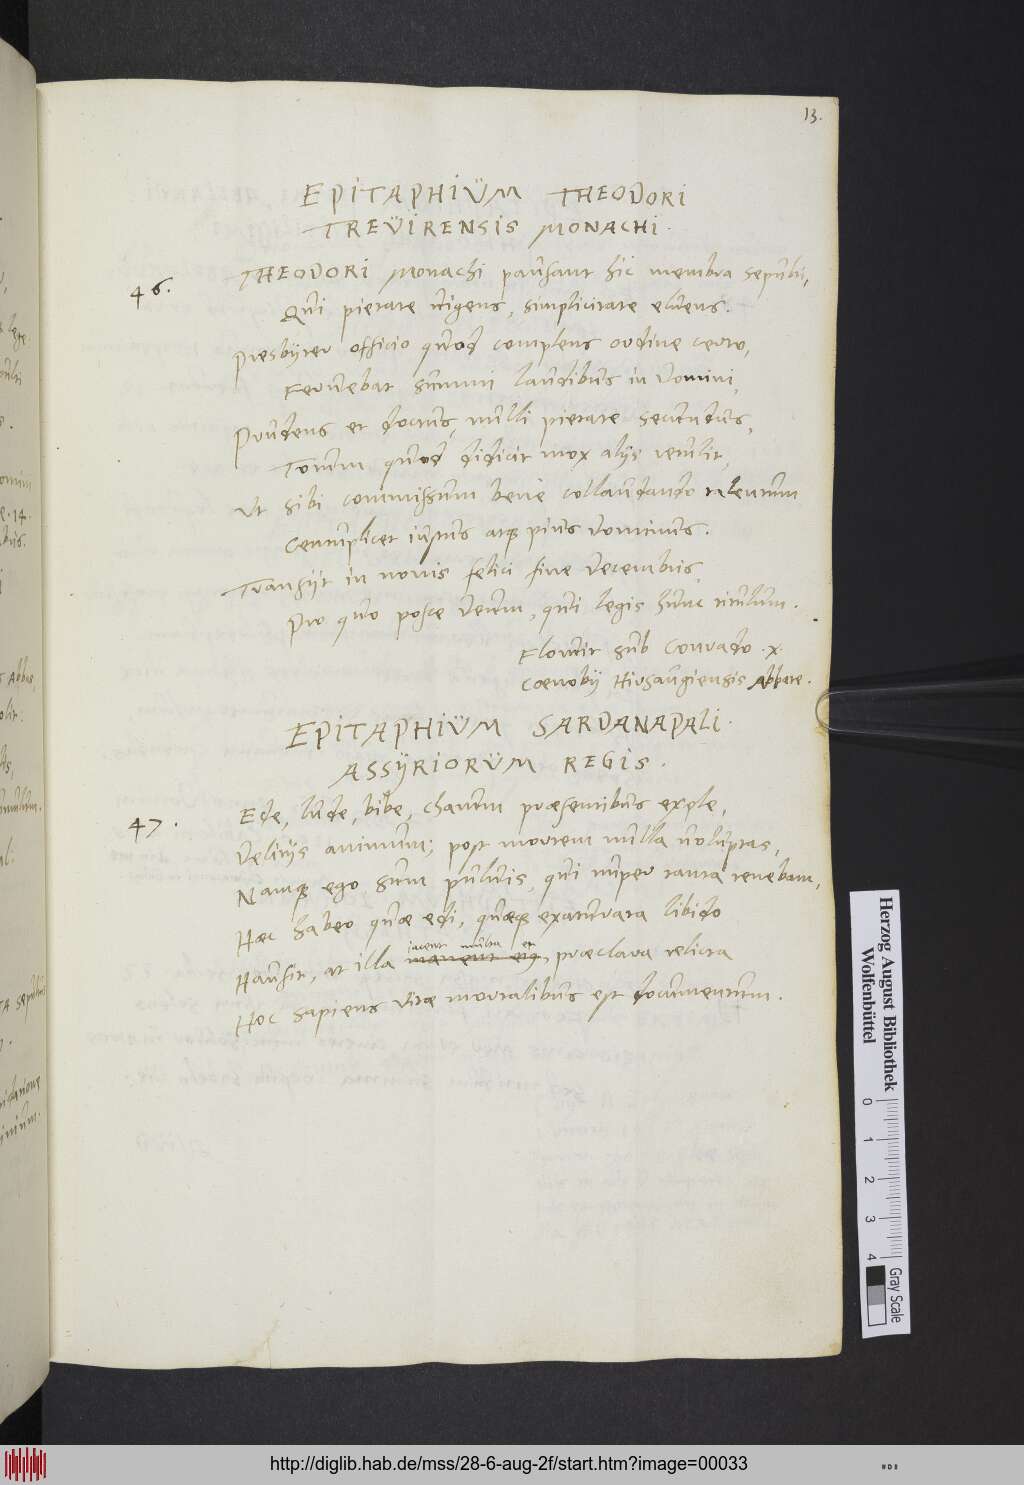 13.
EPITAPHIUM THEODORI
TREVIRENSIS MONACHI.
46.
THEODORI Monachi pausant hic membra sepulti,
Qui pietate vigens, simplicitate cluens.
Presbyter officio quod complens ordine certo,
Fervebat summi laudibus in Domini,
Prudens et doctus, nulli pietate secundus,
Totum quod didicit mox alys retulit,
Ut sibi commissum bene collaudando talentum
Centuplicet iustus atq pius Dominus.
Transyt in nonis felici fine Decembris,
Pro quo posce Deum, qui legis hunc titulum.
Floruit sub Conrado .x.
Coenoby Hirsaugiensis Abbate.
EPITAPHIUM SARDANAPALI.
ASSYRIORUM REGIS.
47.
Ede, lude, bibe, charum præsentibus exple,
Delitys animum; post mortem nulla voluptas,
Namq ego sum pulvis, qui nuper tanta tenebam,
Hæc habeo quæ edi, quæq exaturata libido
Hausit, at illa iacent multa et præclara relicta
Hoc sapiens vitæ mortalibus est documentum.
Herzog August Bibliothek
Wolfenbüttel
0 1 2 3 4
Gray Scale
http://diglib.hab.de/mss/28-6-aug-2f/start.htm?image=00033